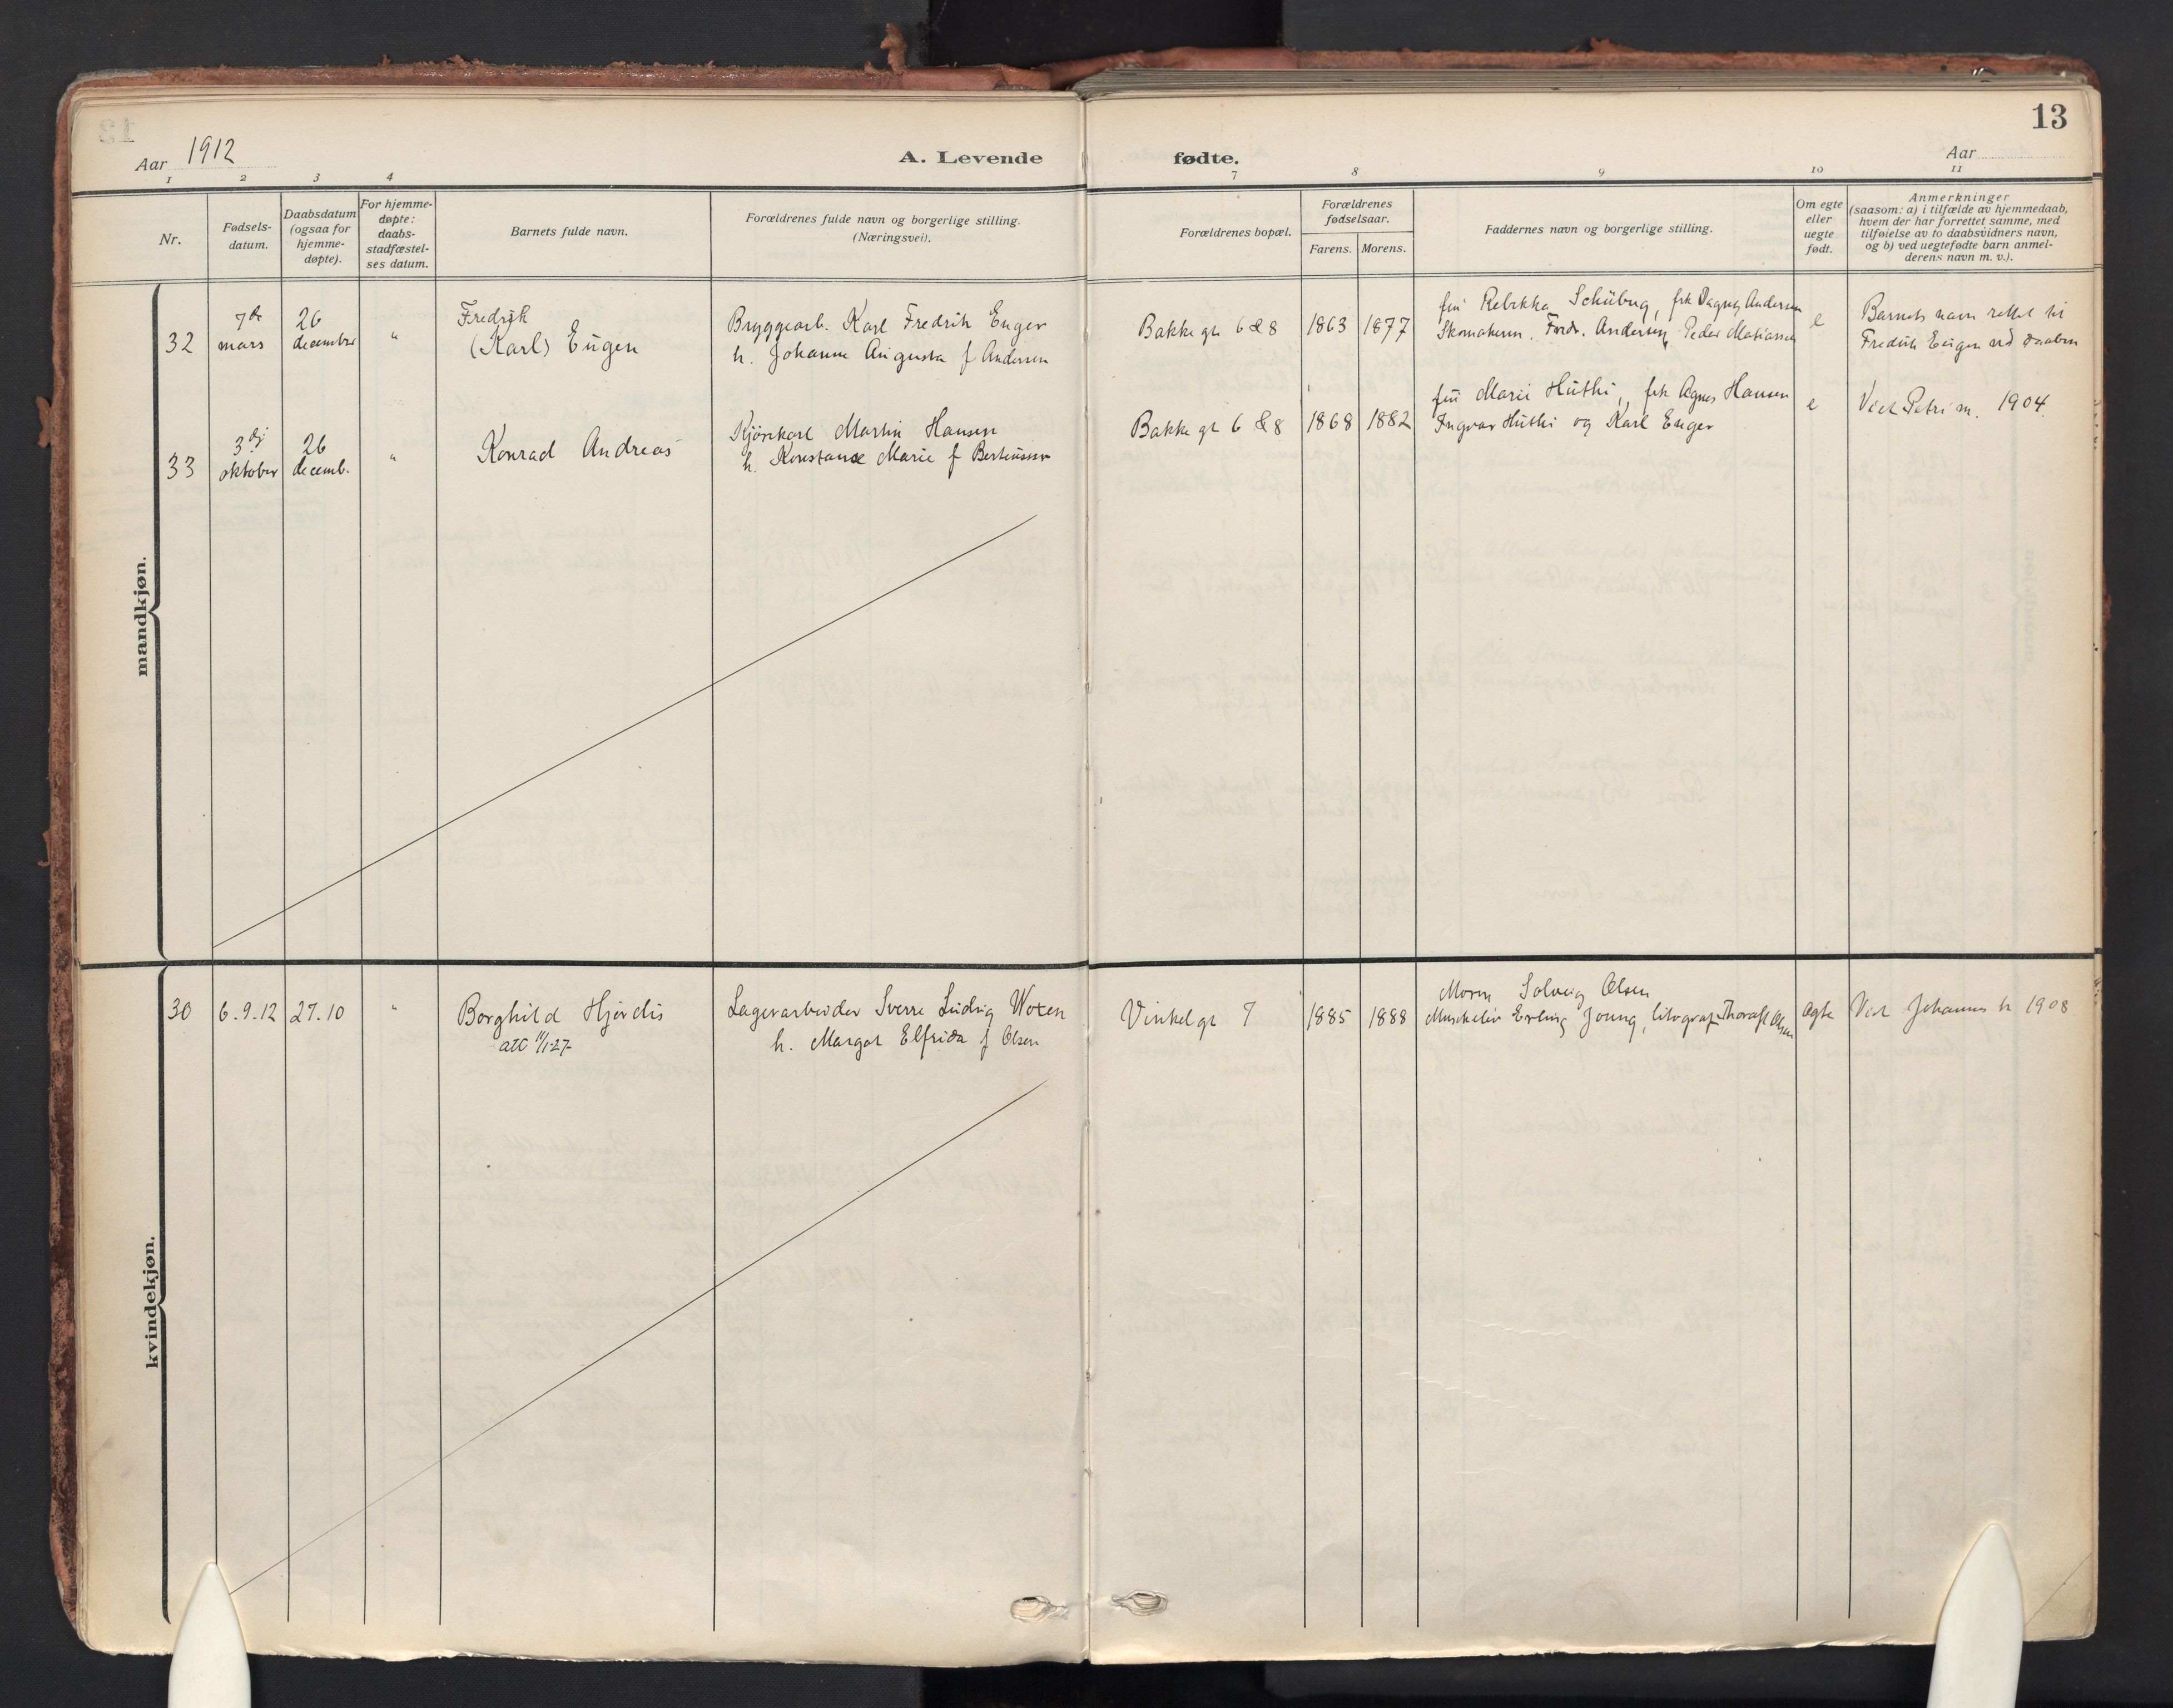 13
Aar 1912
A. Levende
fødte.
Aar
1 2 3 4
7 8 9 10 11
Nr.
Fødsels-
datum.
Daabsdatum
(ogsaa for
hjemme-
døpte).
For hjemme-
døpte:
daabs-
stadfæstel-
ses datum.
Barnets fulde navn.
Forældrenes fulde navn og borgerlige stilling.
(Næringsvei).
Forældrenes bopæl.
Forældrenes
fødselsaar.
Farens. Morens.
Faddernes navn og borgerlige stilling.
Om egte
eller
uegte
født.
Anmerkninger
(saasom: a) i tilfælde av hjemmedaab,
hvem der har forrettet samme, med
tilføielse av to daabsvidners navn,
og b) ved uegtefødte barn anmel-
derens navn m. v.).
mandkjøn.
32
7de
mars
26
december
"
Fredrik
(Karl) Eugen
Bryggearb. Karl Fredrik Enger
h. Johanne Augusta f Andersen
Bakke gt 6 & 8
1863
1877
Rebekka Schüberg, frk Dagny Andersen
Skomakerm. Fredr. Andersen, Peder Matiassen
e
Barnets navn rettet til
Fredrik Eugen ved daaben
33
3dj
oktober
26
decemb.
"
Konrad Andreas
Kjørekarl Martin Hansen
h. Konstanse Marie f Berteussen
Bakke gt 6 & 8
1868
1882
Marie Huthi, frk Agnes Hansen
Ingvar Huthi og Karl Enger
e
Viet Petri m. 1904.
kvindekjøn.
30
6.9.12
27.10
"
Borghild Hjørdis
att 11/1-27-
Lagerarbeider Sverre Ludvig Woxen
h. Margot Elfrida f Olsen
Vinkelgt 7
1885
1888
Moren Solveig Olsen
Musikelev Erling Joung, litograf Thoralf Olsen
egte
Viet Johannes k 1908